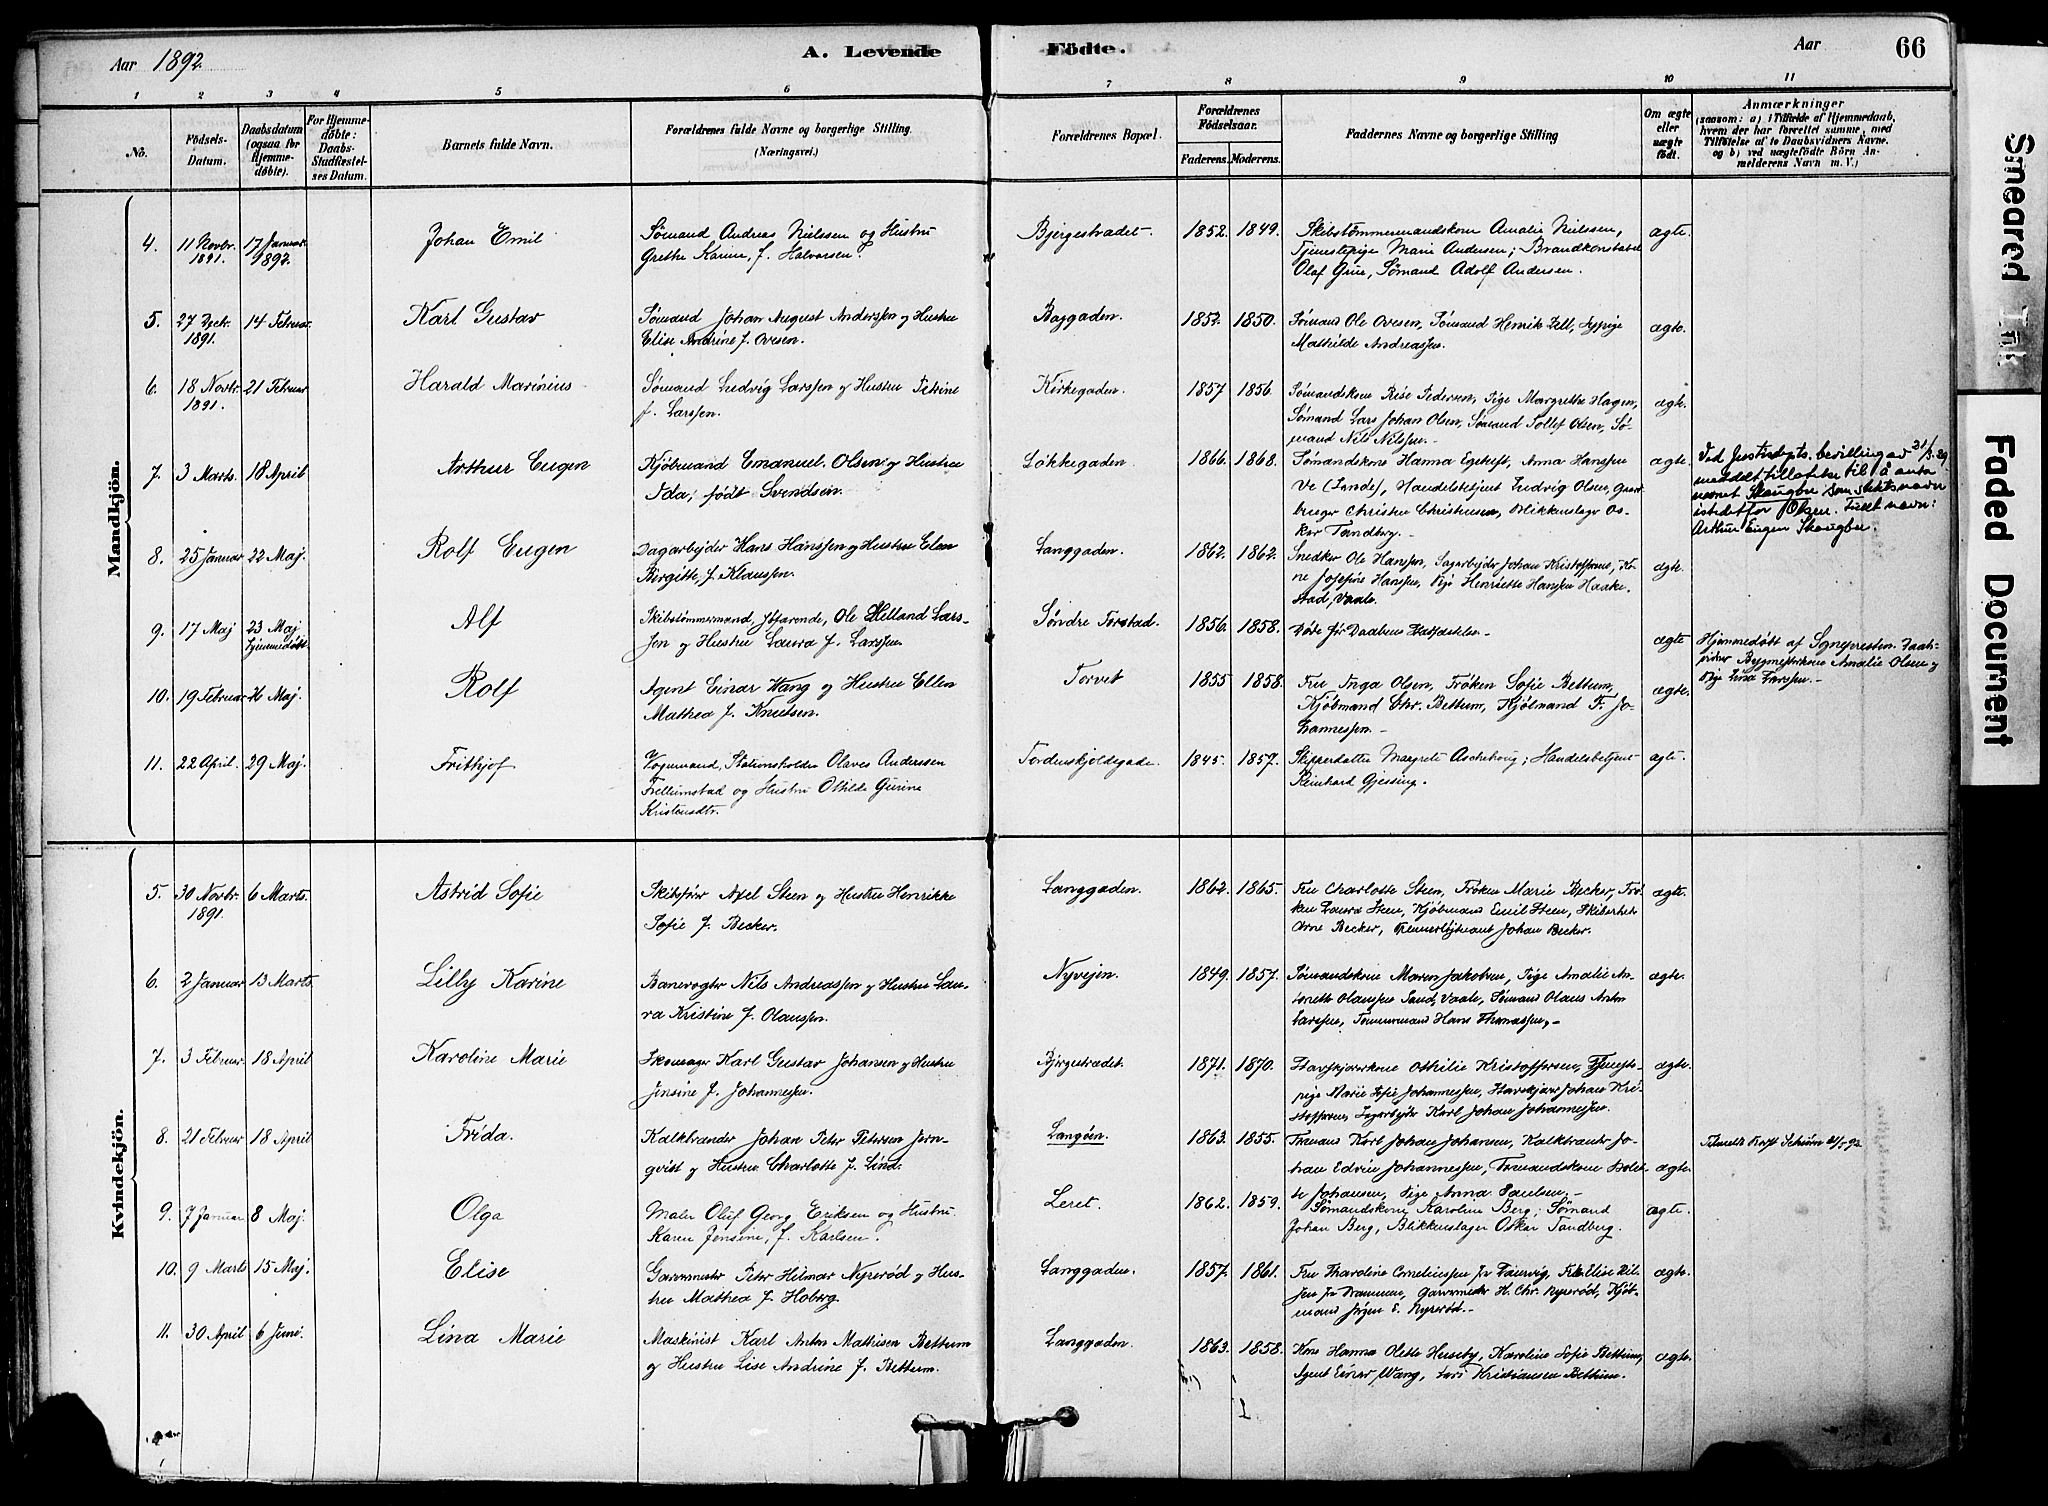 Aar 1892.
A. Levende
Födte.
Aar
66
1 2 3 4 5 6 7 8 9 10 11
No.
Födsels-
Datum.
Daabsdatum
(ogsaa for
Hjemme-
døbte).
For Hjemme-
døbte:
Daabs-
Stadfæstel-
ses Datum.
Barnets fulde Navn.
Forældrenes fulde Navne og borgerlige Stilling.
(Næringsvei.)
Forældrenes Bopæl.
Forældrenes
Födselsaar.
Faderens. Moderens.
Faddernes Navne og borgerlige Stilling
Om ægte
eller
uægte
födt.
Anmærkninger
(saasom: a) i Tilfælde af Hjemmedaab,
hvem der har forrettet samme, med
Tilföielse af to Daabsvidners Navne,
og b) ved uægtefödte Börn An-
melderens Navn m. V.)
Mandkjön.
4. 11 Novbr. 1891. 17 Januar 1892.
Johan Emil
Sømand Andreas Nielssen og Hustru
Grethe Karine, f. Halvorsen.
Bjergestrædet.
1852. 1849.
Skibstømmermandskone Amalie Nielssen,
Tjenestepige Marie Andersen; Brandkonstabel
Olaf Grue, Sømand Adolf Andersen.
ægte.
5. 27 Decbr. 1891. 14 Februar.
Karl Gustav
Sømand Johan August Anderssen og Hustru
Elise Andrine f. Ovesen.
Baggaden.
1852. 1850.
Sømand Ole Ovesen, Sømand Henrik Zell, Sypige
Mathilde Andreassen.
ægte.
6. 18 Novbr. 1891. 21 Februar
Harald Marinius
Sømand Ludvig Larssen og Hustru Petrine
f. Larssen.
Kirkegaden.
1857 1856.
Sømandskone Rise Pedersen, Pige Margrethe Hagen,
Sømand Lars Johan Olsen, Sømand Tollef Olsen, Sø-
mand Nils Nilssen.
ægte.
7. 3 Marts. 18 April
Arthur Eugen
Kjøbmand Emanuel Olsen og Hustru
Ida, født Svendsen.
Løkkegaden.
1866. 1868.
Sømandskone Hanna Egetoft, Anna Hanssen
Ve (Lande), Handelsbetjent Ludvig Olsen, Gaard-
bruger Christen Christensen, Blikkenslager Os-
kar Tandberg.
ægte.
Ved Justisdpts. bevilling av 21/3.29
meddelt tillatelse til å anta
navnet Skaugbo som slektsnavn
istedetfor Olsen. Fullt navn:
Arthur Eugen Skaugbo.
8. 25 Januar 22 Maj.
Rolf Eugen
Dagarbejder Hans Hanssen og Hustru Elen
Birgitte, f. Klaussen.
Langgaden.
1862. 1862.
Snedker Ole Hanssen, Sagarbejder Johan Kristoffersen, Ko-
ne Josefine Hanssen, Pige Henriette Hanssen Haake-
stad, Vaale.
ægte.
9. 17 Maj 23 Maj hjemmedøbt.
Alf
Skibstømmermand, Søfarende, Ole Helland Lars-
sen og Hustru Laura f. Larssen.
Søndre Torstad.
1856. 1858.
Døde før Daabens Stadfæstelse.
ægte
Hjemmedøbt af Sognepresten. Daab-
vidner Bygmesterkone Amalie Olsen og
Pige Lina Larssen.
10. 19 Februar 26 Maj.
Rolf
Agent Einar Wang og Hustru Ellen
Mathea f. Knutsen.
Torvet
1855 1858.
Fru Inga Olsen, Frøken Sofie Bettum,
Kjøbmand Chr. Bettum, Kjøbmand F. Jo-
hannessen.
ægte.
11. 22 April. 29 Maj.
Frithjof
Vognmand, Stationsholder Olaves Anderssen
Frellumstad og Hustru Othilde Gurine
Kristensdtr.
Tordenskjoldsgade.
1845. 1857.
Skipperdatter Margrete Aschehoug; Handelsbetjent
Reinhard Gjessing.
ægte.
Kvindekjön.
5. 30 Novbr. 1891. 6 Marts.
Astrid Sofie
Skibsfører Axel Steen og Hustru Henrikke
Sofie f. Becker.
Langgaden.
1862. 1865.
Fru Charlotte Steen, Frøken Marie Becker, Frø-
ken Laura Steen, Kjøbmand Emil Steen, Skibsreder
Arne Becker, Premierløjtnant Johan Becker.
ægte.
6. 2 Januar 13 Marts.
Lilly Karine
Banevogter Nils Andreassen og Hustru Lau-
ra Kristine f. Olaussen.
Nyvejen.
1849. 1857.
Sømandskone Maren Jakobsen, Pige Amalie An-
tonette Olaussen Sand, Vaale, Sømand Olaus Anton
Larssen, Tømmermand Hans Thomassen.
ægte.
7. 3 Februar 18 April
Karoline Marie
Skomager Karl Gustav Johansen og Hustru
Jensine f. Johannessen.
Bjergestrædet.
1871. 1870.
Skarpskjærkone Othilie Kristoffersen, Tjeneste-
pige Marie Sofie Johannessen, Johan Kri-
stoffersen, Sagarbejder Karl Johan Johannessen.
ægte.
8. 21 Februar 18 April
Frida.
Kalkbrænder Johan Peter Petersen Jern-
qvist og Hustru Charlotte f. Lind.
Langøen.
1863. 1855.
Formand Karl Johan Johansen, Kalkbrænder Jo-
han Edvin Johannessen, Formandskone Bolet-
te Johansen, Pige Anna Paulsen.
ægte.
9. 7 Januar 8 Maj.
Olga
Maler Oluf Georg Eriksen og Hustru
Karen Jensine, f. Karlsen.
Leret.
1862. 1859.
Sømandskone Karoline Berg; Sømand
Johan Berg, Blikkenslager Oskar Tandberg.
ægte.
10. 9 Marts 15 Maj.
Elise
Garvermester Peter Hilmar Nyrerød og Hus-
tru Mathea f. Hoberg.
Langgaden.
1857. 1861.
Fru Karoline Corneliussen fr Laurvig, Frk Elise Nil-
sen fr Drammen, Garvermester H. Chr. Nyrerød, Kjøb-
mand Jørgen E. Nyrerød.
ægte.
11. 30 April 6 Juni.
Lina Marie
Maskinist Karl Anton Mathisen Bettum
og Hustru Lise Andrine f. Bettum.
Langgaden.
1863. 1858.
Kone Hanna Olette Huseby, Karoline Sofie Bettum,
Agent Einar Wang, Lars Kristiansen Bettum.
ægte.
Smeared Ink
Faded Document